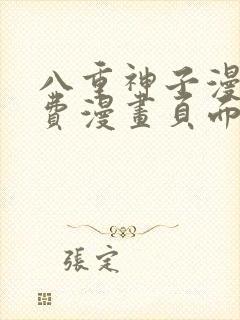 八重神子漫
費漫畫頁面
張定